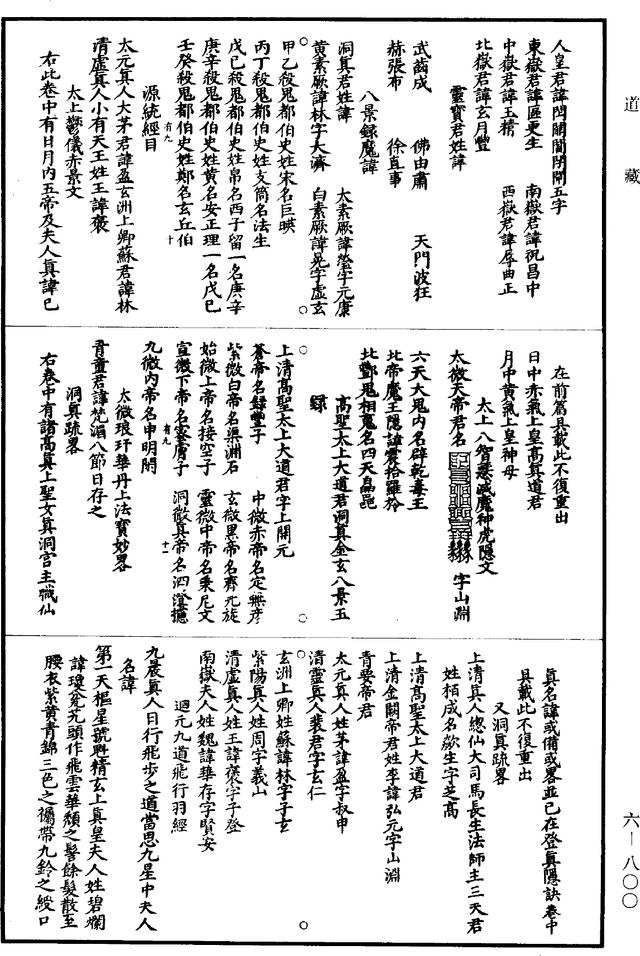 道藏
人皇君諱閃開閶閉開五字
東嶽君諱區更生　南嶽君諱祝昌中
中嶽君諱玉精　西嶽君諱辱曲正
北嶽君諱玄月豐
靈寶君姓諱
武崙成　佛由肅　天門波狂
赫張布　徐直事
八景錄魔諱
洞真君姓諱　太素厥諱塋字元康
黃素厥諱林字大濟　白素厥諱晃字虛玄
甲乙殺鬼都伯史姓宋名巨映
丙丁殺鬼都伯史姓支蕳名法生
戊巳殺鬼都伯史姓帛名西子留一名庚辛
庚辛殺鬼都伯史姓黃名安正理一名戊巳
壬癸殺鬼都伯史姓鄭名玄丘伯
有九
十
源統經目
太元真人大茅君諱盈玄洲上卿蘇君諱林
清虛真人小有天王姓王諱褒
太上鬱儀赤景文
右此卷中有日月內五帝及夫人真諱已
在前篇具載此不復重出
日中赤氣上皇高真道君
月中黃氣上皇神母
太上八智慧滅魔神虎隱文
太微天帝君名　字山淵
六天大鬼內名辟乾毒王
北帝魔王隱諱雲拾羅枔
北酆鬼相鬼名四天
高聖太上大道君洞真金玄八景玉
錄
上清高聖太上大道君字上開元
蒼帝名錄豐子　中微赤帝名定無彥
紫微白帝名渠淵石　玄微黑帝名齊元旋
始微上帝名接空子　靈微中帝名乘尼文
宣微下帝名寥膚子　洞微真帝名泗澄擿
有九
十一
九微內帝名申明閉
太微琅玕華丹上法寶妙畧
青童君諱梵湄八節日存之
洞真疏畧
右卷中有諸高真上聖女真洞宮主職仙
真名諱或備或畧並已在登真隱訣卷中
具載此不復重出
又洞真疏畧
上清真人緫仙大司馬長生法師主三天君
姓栢成名欻生字芝高
上清高聖太上大道君
上清金闕帝君姓李諱弘元字山淵
青要帝君
太元真人姓茅諱盈字叔申
清靈真人裴君字玄仁
玄洲上卿姓蘇諱林字子玄
紫陽真人姓周字義山
清虛真人姓王諱褒字子登
南嶽夫人姓魏諱華存字賢安
迴元九道飛行羽經
九晨真人日行飛步之道當思九星中夫人
名諱
第一天樞星號魁精玄上真皇夫人姓碧爛
諱瓊瓮芄頭作飛雲華頹之髻餘髮散至
腰衣紫黃青錦三色之襦帶九鈴之綬口
六－八〇〇